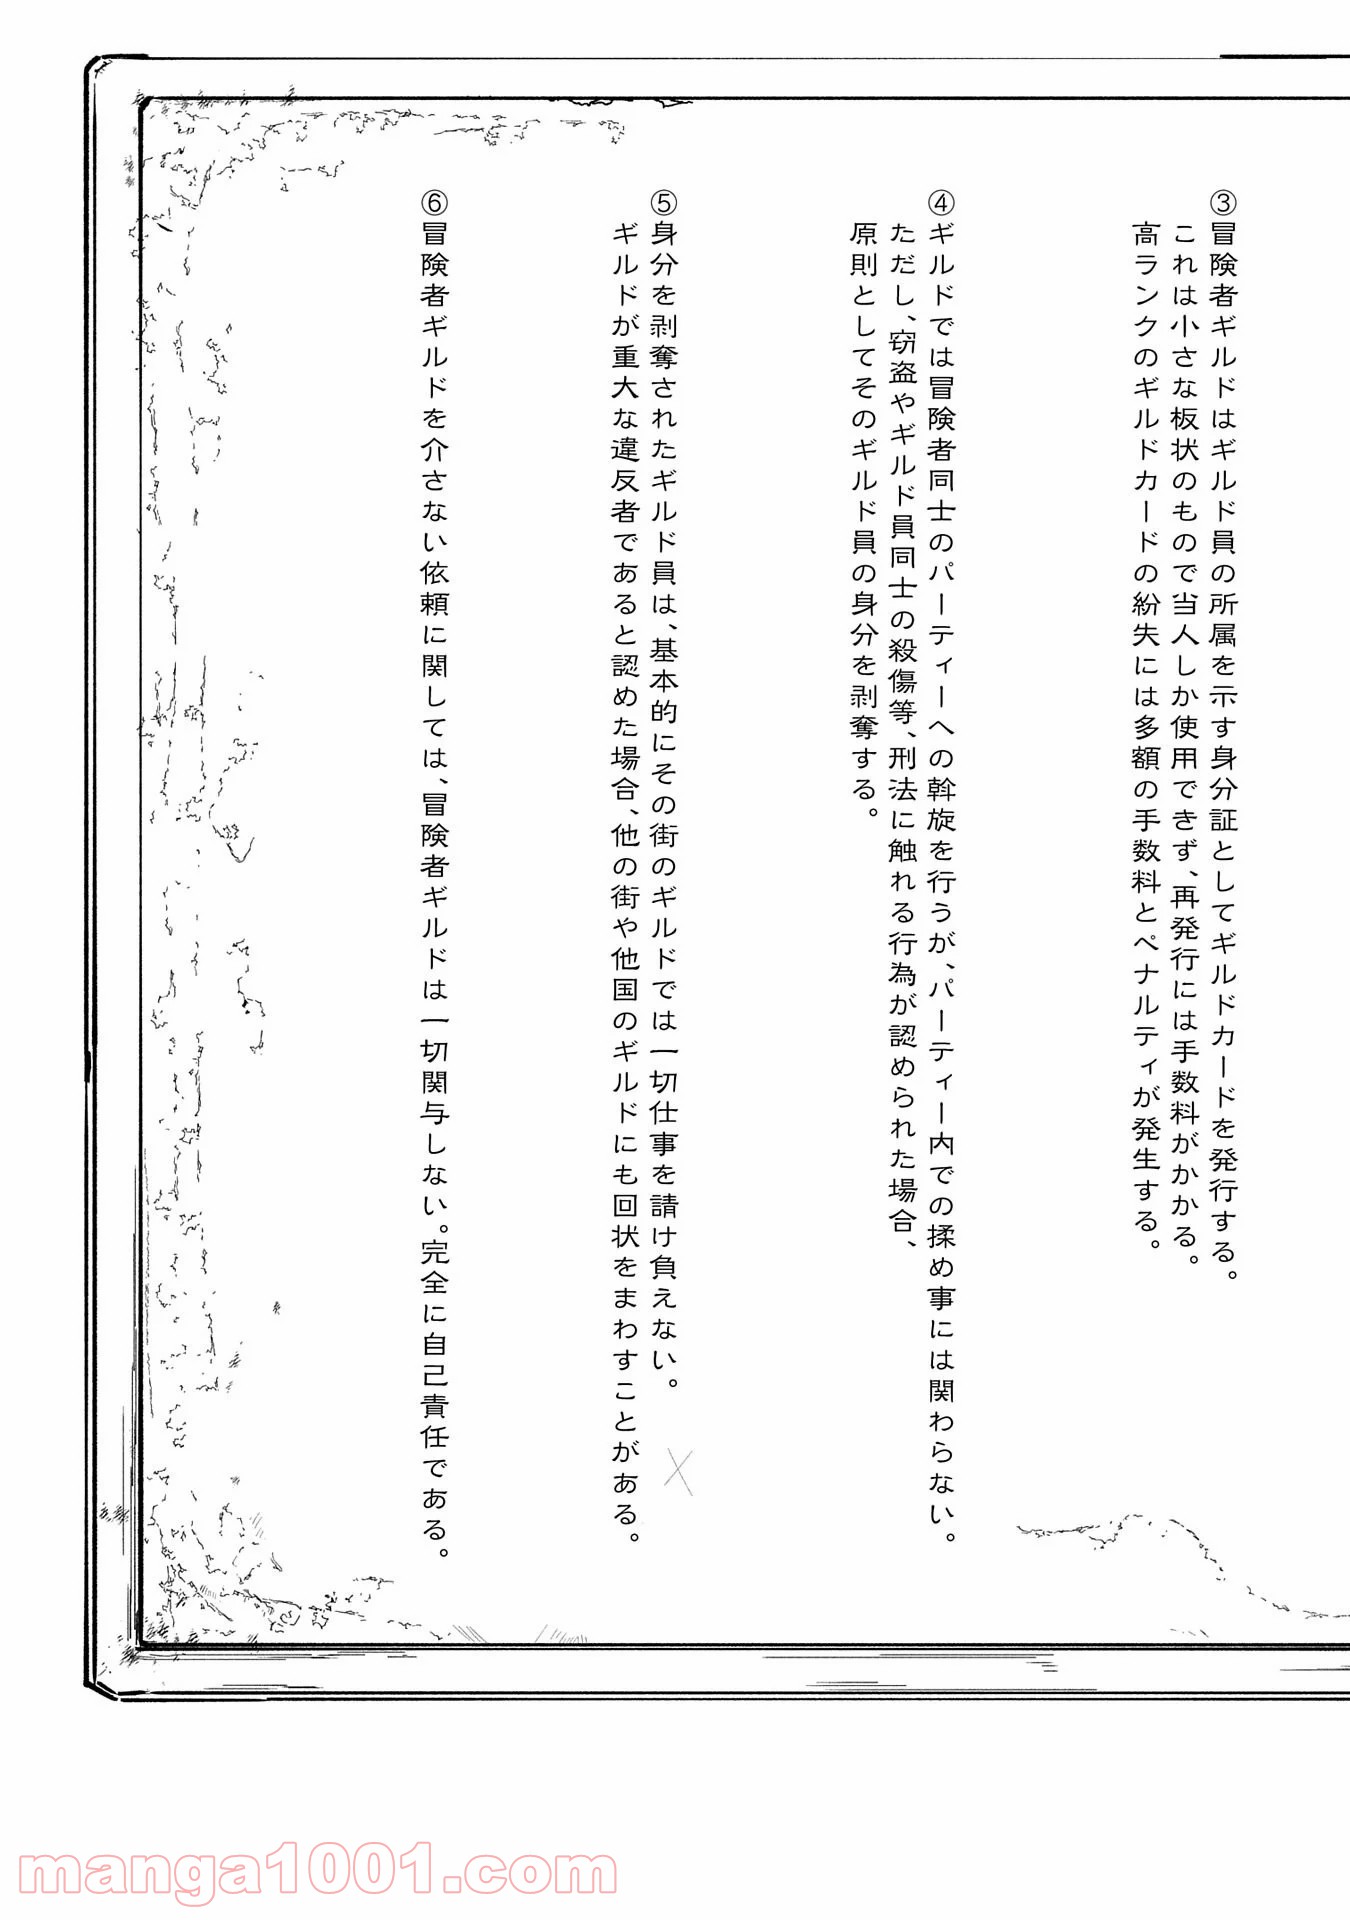 ③冒険者ギルドはギルド員の所属を示す身分証としてギルドカードを発行する。
これは小さな板状のもので当人しか使用できず、再発行には手数料がかかる。
高ランクのギルドカードの紛失には多額の手数料とペナルティが発生する。
④ギルドでは冒険者同士のパーティーへの斡旋を行うが、パーティー内での揉め事には関わらない。
ただし、窃盗やギルド員同士の殺傷等、刑法に触れる行為が認められた場合、
原則としてそのギルド員の身分を剥奪する。
⑤身分を剥奪されたギルド員は、基本的にその街のギルドでは一切仕事を請け負えない。
ギルドが重大な違反者であると認めた場合、他の街や他国のギルドにも回状をまわすことがある。
⑥冒険者ギルドを介さない依頼に関しては、冒険者ギルドは一切関与しない。完全に自己責任である。
manga1001.com